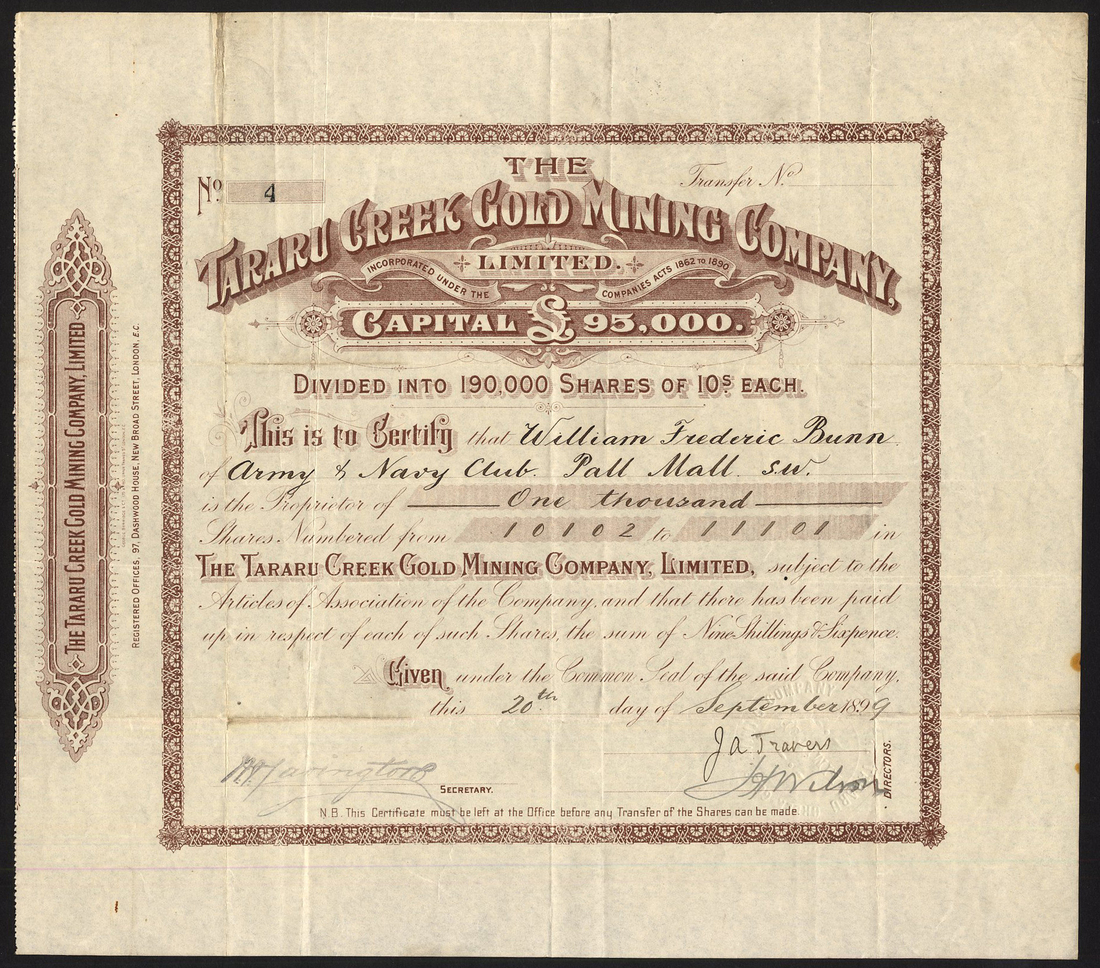 THE TARARU CREEK GOLD MINING COMPANY, LIMITED
REGISTERED OFFICES, 97, DASHWOOD HOUSE, NEW BROAD STREET, LONDON, E.C.
No. 4
Transfer No.
THE
TARARU CREEK GOLD MINING COMPANY,
LIMITED.
INCORPORATED UNDER THE COMPANIES ACTS 1862 TO 1890
CAPITAL £ 95,000.
DIVIDED INTO 190,000 SHARES OF 10s EACH.
This is to Certify that William Frederic Bunn
of Army & Navy Club. Pall Mall S.W.
is the Proprietor of One thousand
Shares Numbered from 10102 to 11101 in
THE TARARU CREEK GOLD MINING COMPANY, LIMITED, subject to the
Articles of Association of the Company, and that there has been paid
up in respect of each of such Shares, the sum of Nine Shillings & Sixpence.
Given under the Common Seal of the said Company,
this 20th day of September 1899
J A Travers
Wilson
DIRECTORS.
SECRETARY.
N.B. This Certificate must be left at the Office before any Transfer of the Shares can be made.